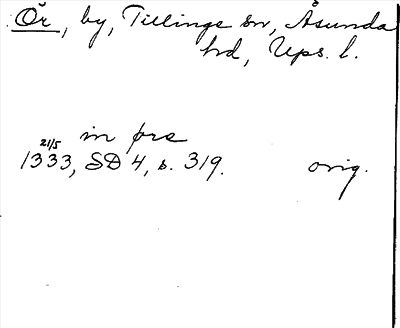 Ör, by, Tillinge sn, Åsunda
hd, Ups. l.
in ørs
21/5
1333, SD 4, s. 319. orig.